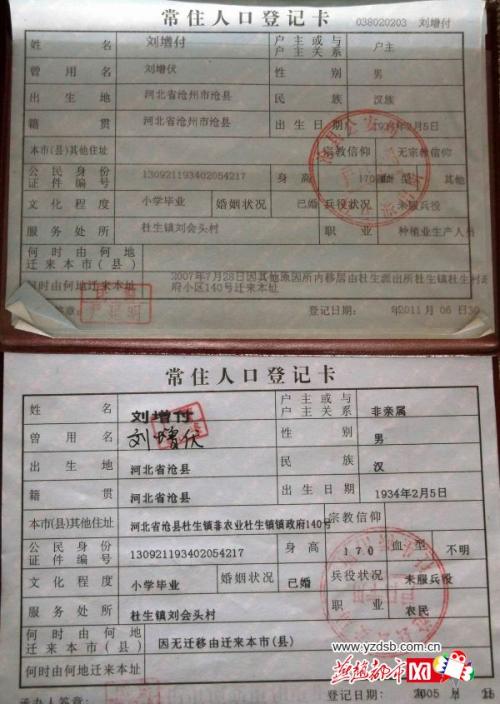 常住人口登记卡
038020203 刘增付
姓名 刘增付 户主或与户主关系 户主
曾用名 刘增伏 性别 男
出生地 河北省沧州市沧县 民族 汉族
籍贯 河北省沧州市沧县 出生日期 1934年2月5日
本市(县)其他住址 宗教信仰 无宗教信仰
公民身份证件编号 130921193402054217 身高 170 血型 其他
文化程度 小学毕业 婚姻状况 已婚 兵役状况 未服兵役
服务处所 杜生镇刘会头村 职业 种植业生产人员
何时由何地迁来本市(县)
何时由何地迁来本址 2007年7月28日因其他原因所内移居由杜生派出所杜生镇杜生村政府小区140号迁来本址
登记日期: 2011 年 06 月 30
常住人口登记卡
姓名 刘增付 户主或与户主关系 非亲属
曾用名 刘增伏 性别 男
出生地 河北省沧县 民族 汉
籍贯 河北省沧县 出生日期 1934年2月5日
本市(县)其他住址 河北省沧县杜生镇非农业杜生镇镇政府140号 宗教信仰
公民身份证件编号 130921193402054217 身高 170 血型 不明
文化程度 小学毕业 婚姻状况 已婚 兵役状况 未服兵役
服务处所 杜生镇刘会头村 职业 农民
何时由何地迁来本市(县) 因无迁移由迁来本市(县)
何时由何地迁来本址
承办人签章: 登记日期: 2005 年 月 日
www.yzdsb.com.cn
燕赵都市网